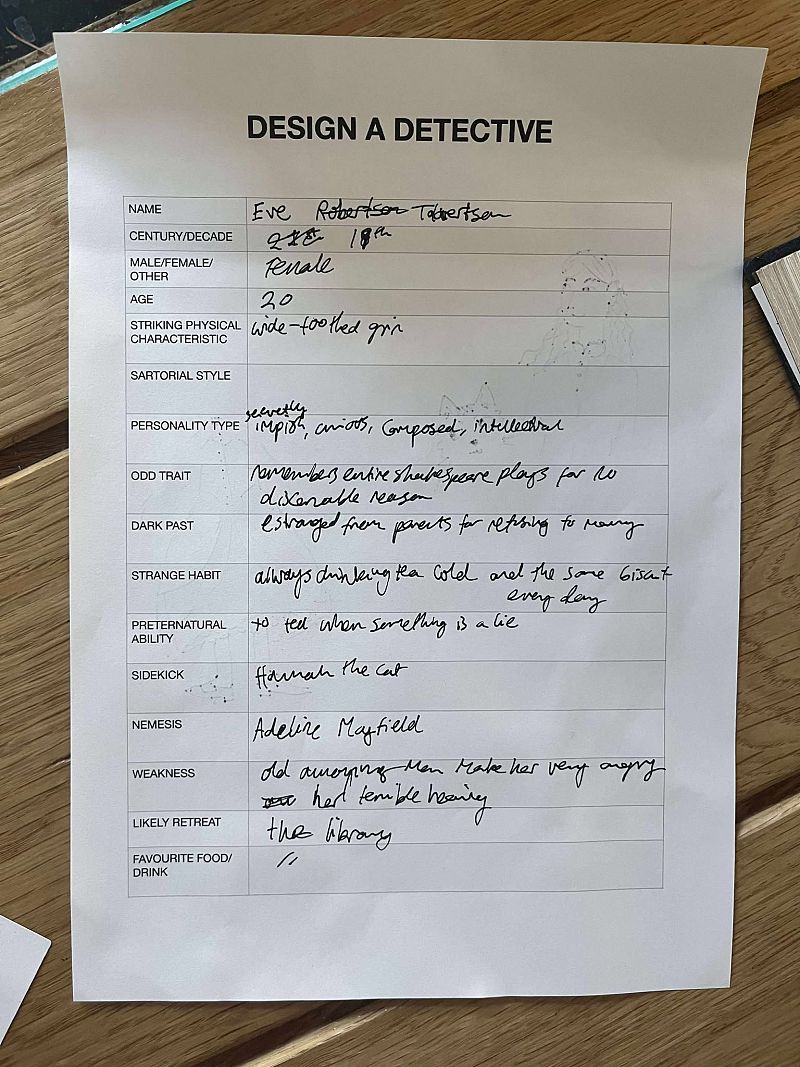 DESIGN A DETECTIVE
NAME Eve Robertson Tobertson
CENTURY/DECADE 21st 18th
MALE/FEMALE/
OTHER Female
AGE 20
STRIKING PHYSICAL
CHARACTERISTIC wide-toothed grin
SARTORIAL STYLE
secretly
PERSONALITY TYPE impish, curious, composed, intellectual
ODD TRAIT remembers entire shakespeare plays for no
discernable reason
DARK PAST estranged from parents for refusing to marry
STRANGE HABIT always drinking tea cold and the same biscuit
every day
PRETERNATURAL
ABILITY to tell when something is a lie
SIDEKICK Hannah the cat
NEMESIS Adeline Mayfield
WEAKNESS old annoying men make her very angry
her terrible hearing
LIKELY RETREAT the library
FAVOURITE FOOD/
DRINK "